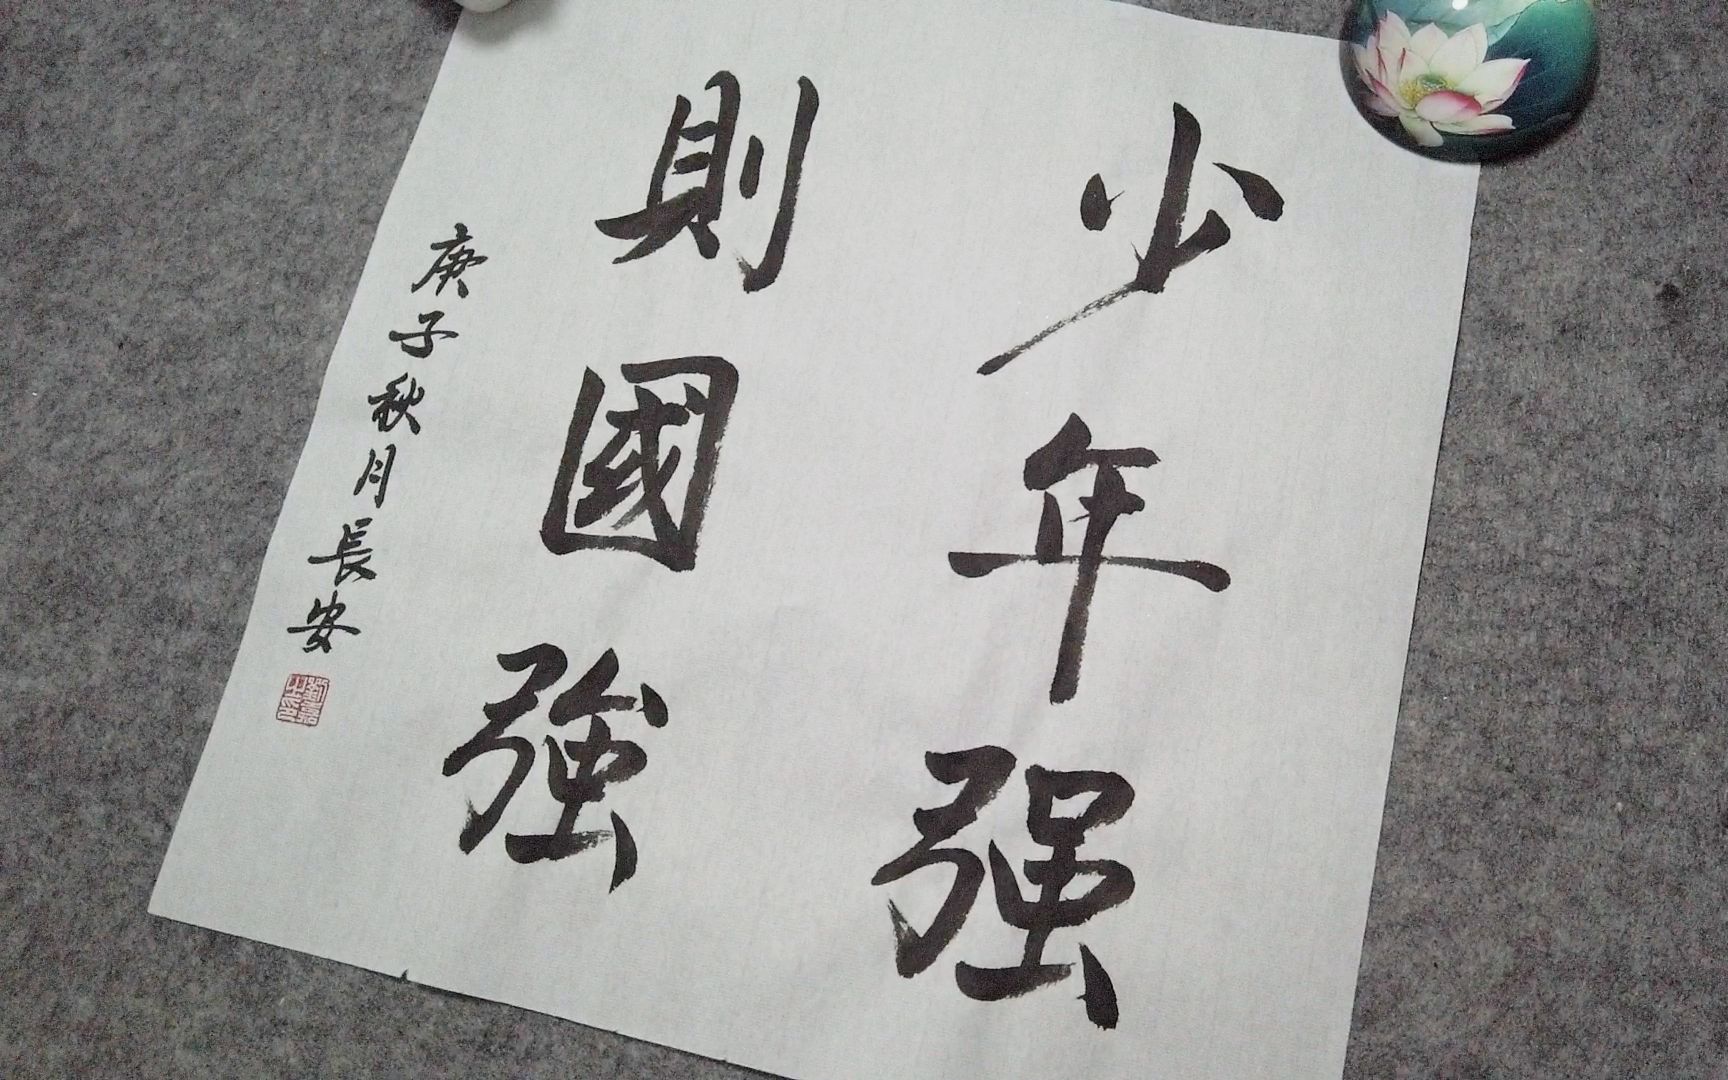 少年强
則國強
庚子秋月長安